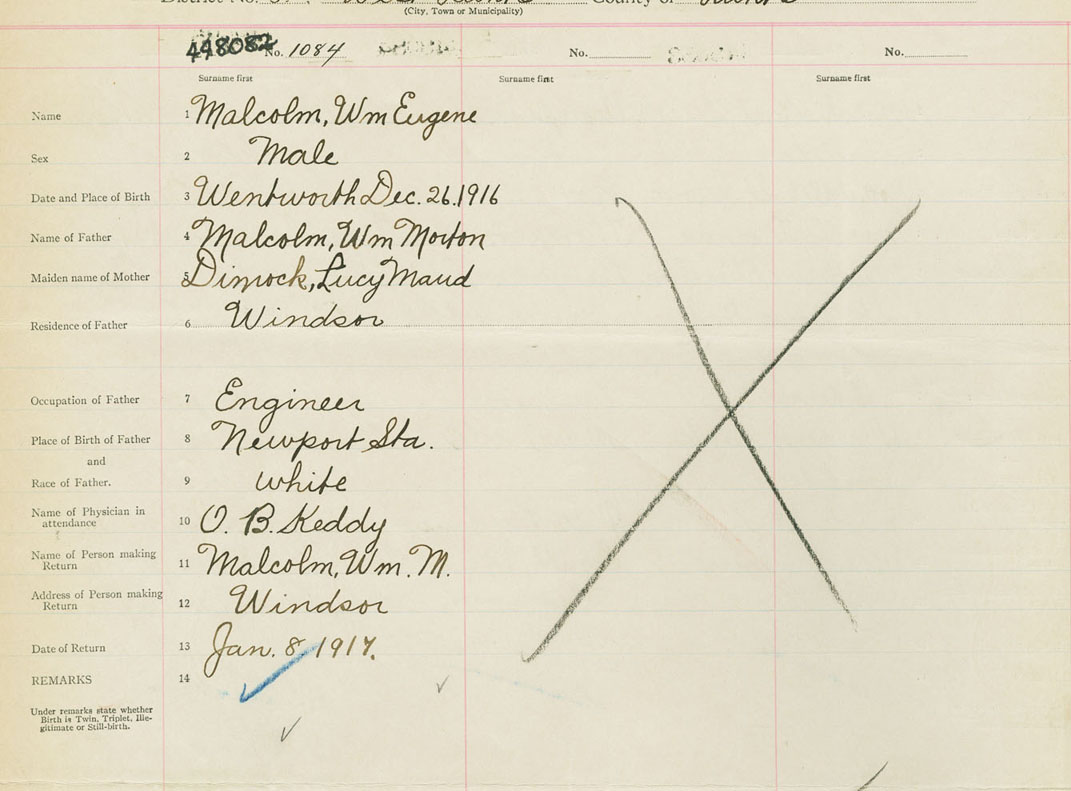 District No. West Hants County of Hants
(City, Town or Municipality)
448082 No. 1084 No. No.
Surname first Surname first Surname first
Name 1 Malcolm, Wm Eugene
Sex 2 Male
Date and Place of Birth 3 Wentworth Dec. 26. 1916
Name of Father 4 Malcolm, Wm Morton
Maiden name of Mother 5 Dimock, Lucy Maud
Residence of Father 6 Windsor
Occupation of Father 7 Engineer
Place of Birth of Father 8 Newport Sta.
and
Race of Father. 9 white
Name of Physician in
attendance 10 O. B. Keddy
Name of Person making
Return 11 Malcolm, Wm. M.
Address of Person making
Return 12 Windsor
Date of Return 13 Jan. 8 1917.
REMARKS 14
Under remarks state whether
Birth is Twin, Triplet, Ille-
gitimate or Still-birth.